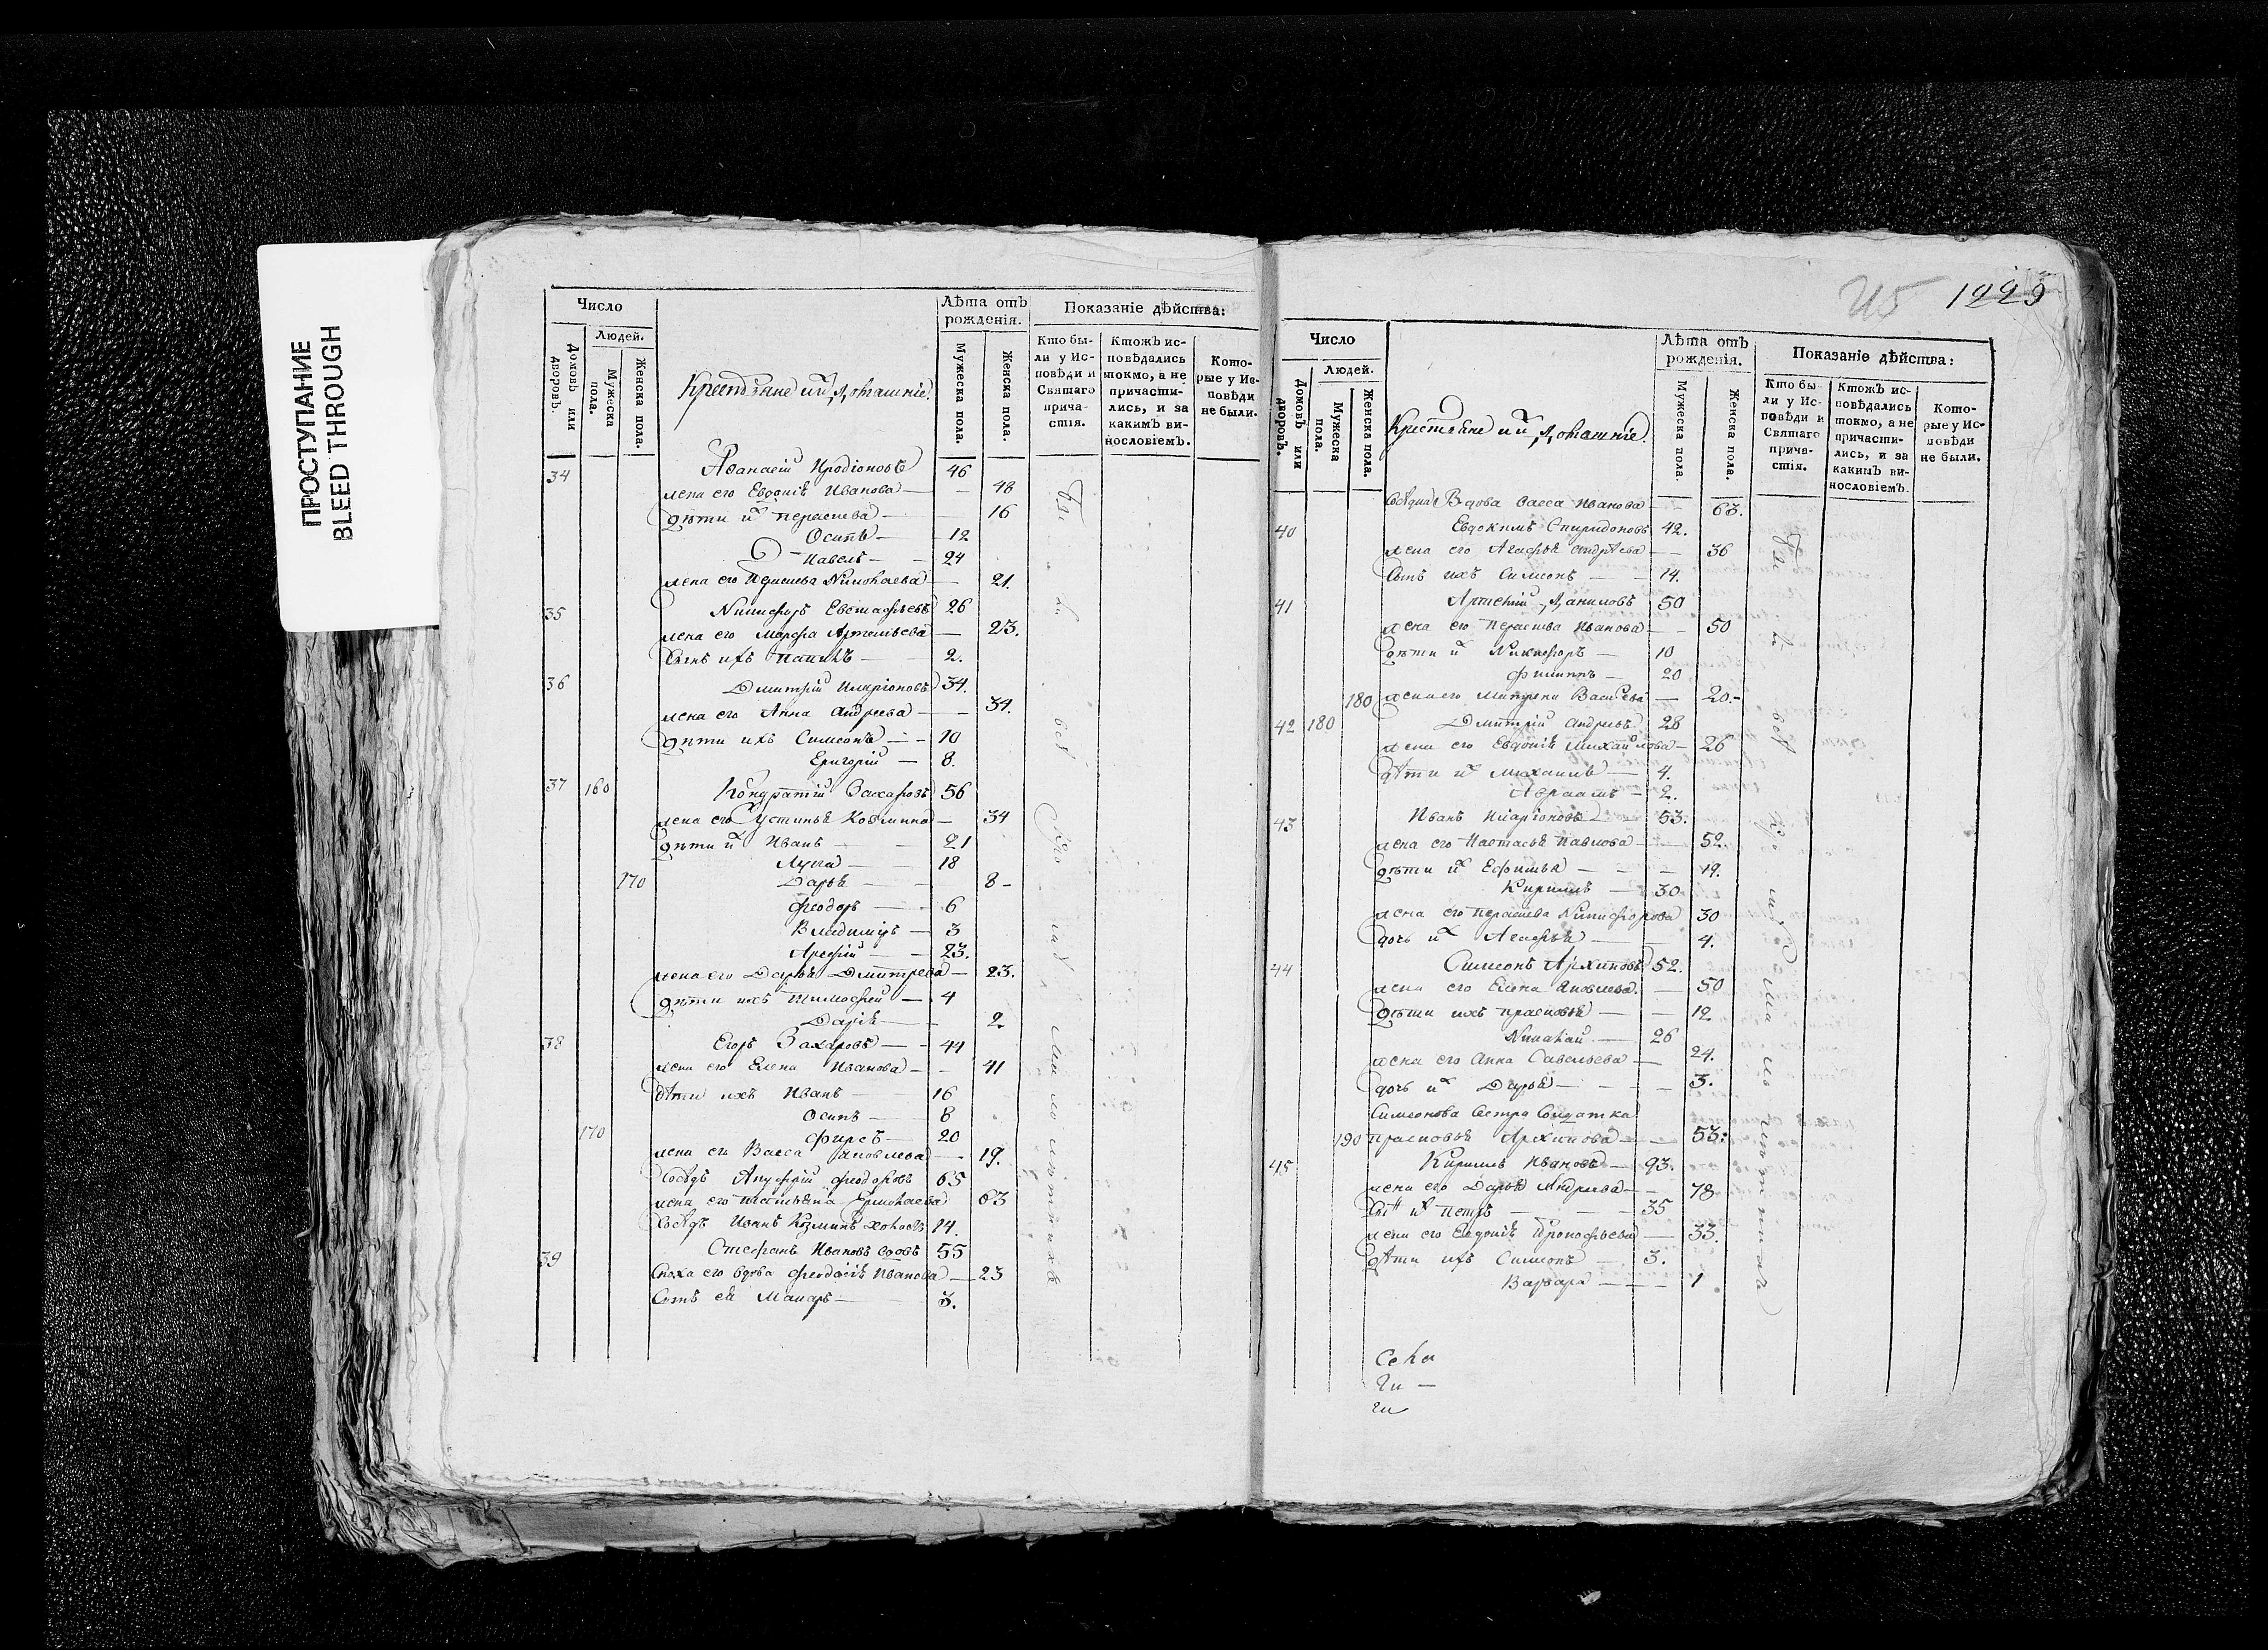 ПРОСТУПАНИЕ
BLEED THROUGH
Число
Людей.
Домовъ или дворовъ.
Мужеска пола.
Женска пола.
Крестьяне и их домашніе.
Лѣта отъ рожденія.
Мужеска пола.
Женска пола.
Показаніе дѣйства:
Кто бы-
ли у Ис-
повѣди и
Святаго
прича-
стія.
Ктожъ ис-
повѣдались
токмо, а не
причасти-
лись, и за
какимъ ви-
нословіемъ.
Кото-
рые у Ис-
повѣди
не были.
34 Афанасій Иродіоновъ 46
жена его Евдокія Иванова — 48
дѣти их Параскева — 16
Осипъ — 12
Павелъ — 24
жена его 21.
35 Никифоръ Евстафьевъ 26
жена его Марфа Артемьева — 23.
Сынъ ихъ 2.
36 Дмитрій Иларіоновъ 34.
жена его Анна Андреева — 34.
дѣти ихъ Симеонъ — 10
Григорій — 8.
37 160 Кондратій Захаровъ 56
жена его Устинья Козмина — 34
дѣти их Иванъ — 21
Лука — 18
170 Дарья — 8 -
Феодоръ — 6
Владимиръ — 3
Арефій — 23.
жена его Дарья Дмитрева — 23.
дѣти ихъ Тимофей — 4
Дарія — 2
38 Егоръ Захаровъ — 44
жена его Елена Иванова — 41
дѣти ихъ Иванъ — 16
Осипъ — 8
170 Фирсъ — 20
жена его Васса Яковлева — 19.
Сосѣдъ Ануфрій Феодоровъ 65
жена его Татьяна 63
Сосѣдъ Иванъ Козминъ 14.
39 Стефанъ Ивановъ 55
Сноха его вдова Феодосія Иванова — 23
Сынъ ея Макаръ — 3.
1223
Число
Людей.
Домовъ или дворовъ.
Мужеска пола.
Женска пола.
Крестьяне и их домашніе.
Лѣта отъ рожденія.
Мужеска пола.
Женска пола.
Показаніе дѣйства:
Кто бы-
ли у Ис-
повѣди и
Святаго
прича-
стія.
Ктожъ ис-
повѣдались
токмо, а не
причасти-
лись, и за
какимъ ви-
нословіемъ.
Кото-
рые у Ис-
повѣди
не были.
Вдова Васса Иванова — 63.
40 Евдокимъ Спиридоновъ 42.
жена его Агафья Андрѣева — 36
Сынъ ихъ Симеонъ — 14.
41 Даниловъ 50
жена его Параскева Иванова — 50
дѣти их Никифоръ — 10
Филиппъ — 20
180 жена его Матрена 20.-
42 180 Дмитрій Андреевъ 28
жена его Евдокія Михайлова — 26
дѣти их Михаилъ — 4.
Авраамъ — 2.
43 Иванъ Иларіоновъ 53.
жена его Настасья Павлова — 52.
дѣти их 19.
Кирилъ — 30
жена его Параскева Никифорова 30
дочь их Агафья — 4.
44 Симеонъ Архиповъ 52.
жена его Елена Яковлева. — 50
дѣти ихъ Прасковья — 12
26
жена его Анна Савельева — 24.
дочь их Дарья — 3.
Симеонова Сестра Солдатка
190 Прасковья Архипова — 53:
45 Кирилъ Ивановъ — 93.
жена его Дарья Андреева — 78
Сынъ их Петръ — 35
жена его Евдокія Прокофьева — 33.
дѣти ихъ Симеонъ — 3.
Варвара — 1